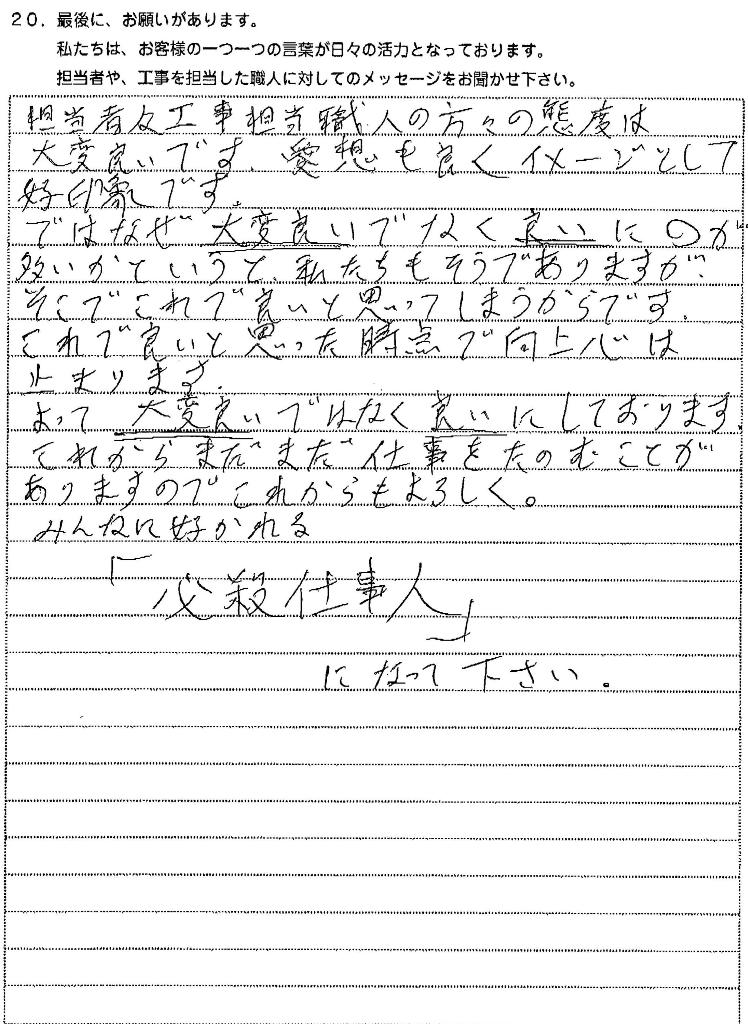 20．最後に、お願いがあります。
私たちは、お客様の一つ一つの言葉が日々の活力となっております。
担当者や、工事を担当した職人に対してのメッセージをお聞かせ下さい。
担当者及工事担当職人の方々の態度は
大変良いです。愛想も良くイメージとして
好印象です。
ではなぜ 大変良いでなく良いにのが
多いかというと、私たちもそうでありますが、
そこでこれで良いと思ってしまうからです。
これで良いと思った時点で向上心は
止まります。
よって 大変良いではなく良いにしております。
これからまだまだ仕事をたのむことが
ありますのでこれからもよろしく。
みんなに好かれる
「必殺仕事人」
になって下さい。